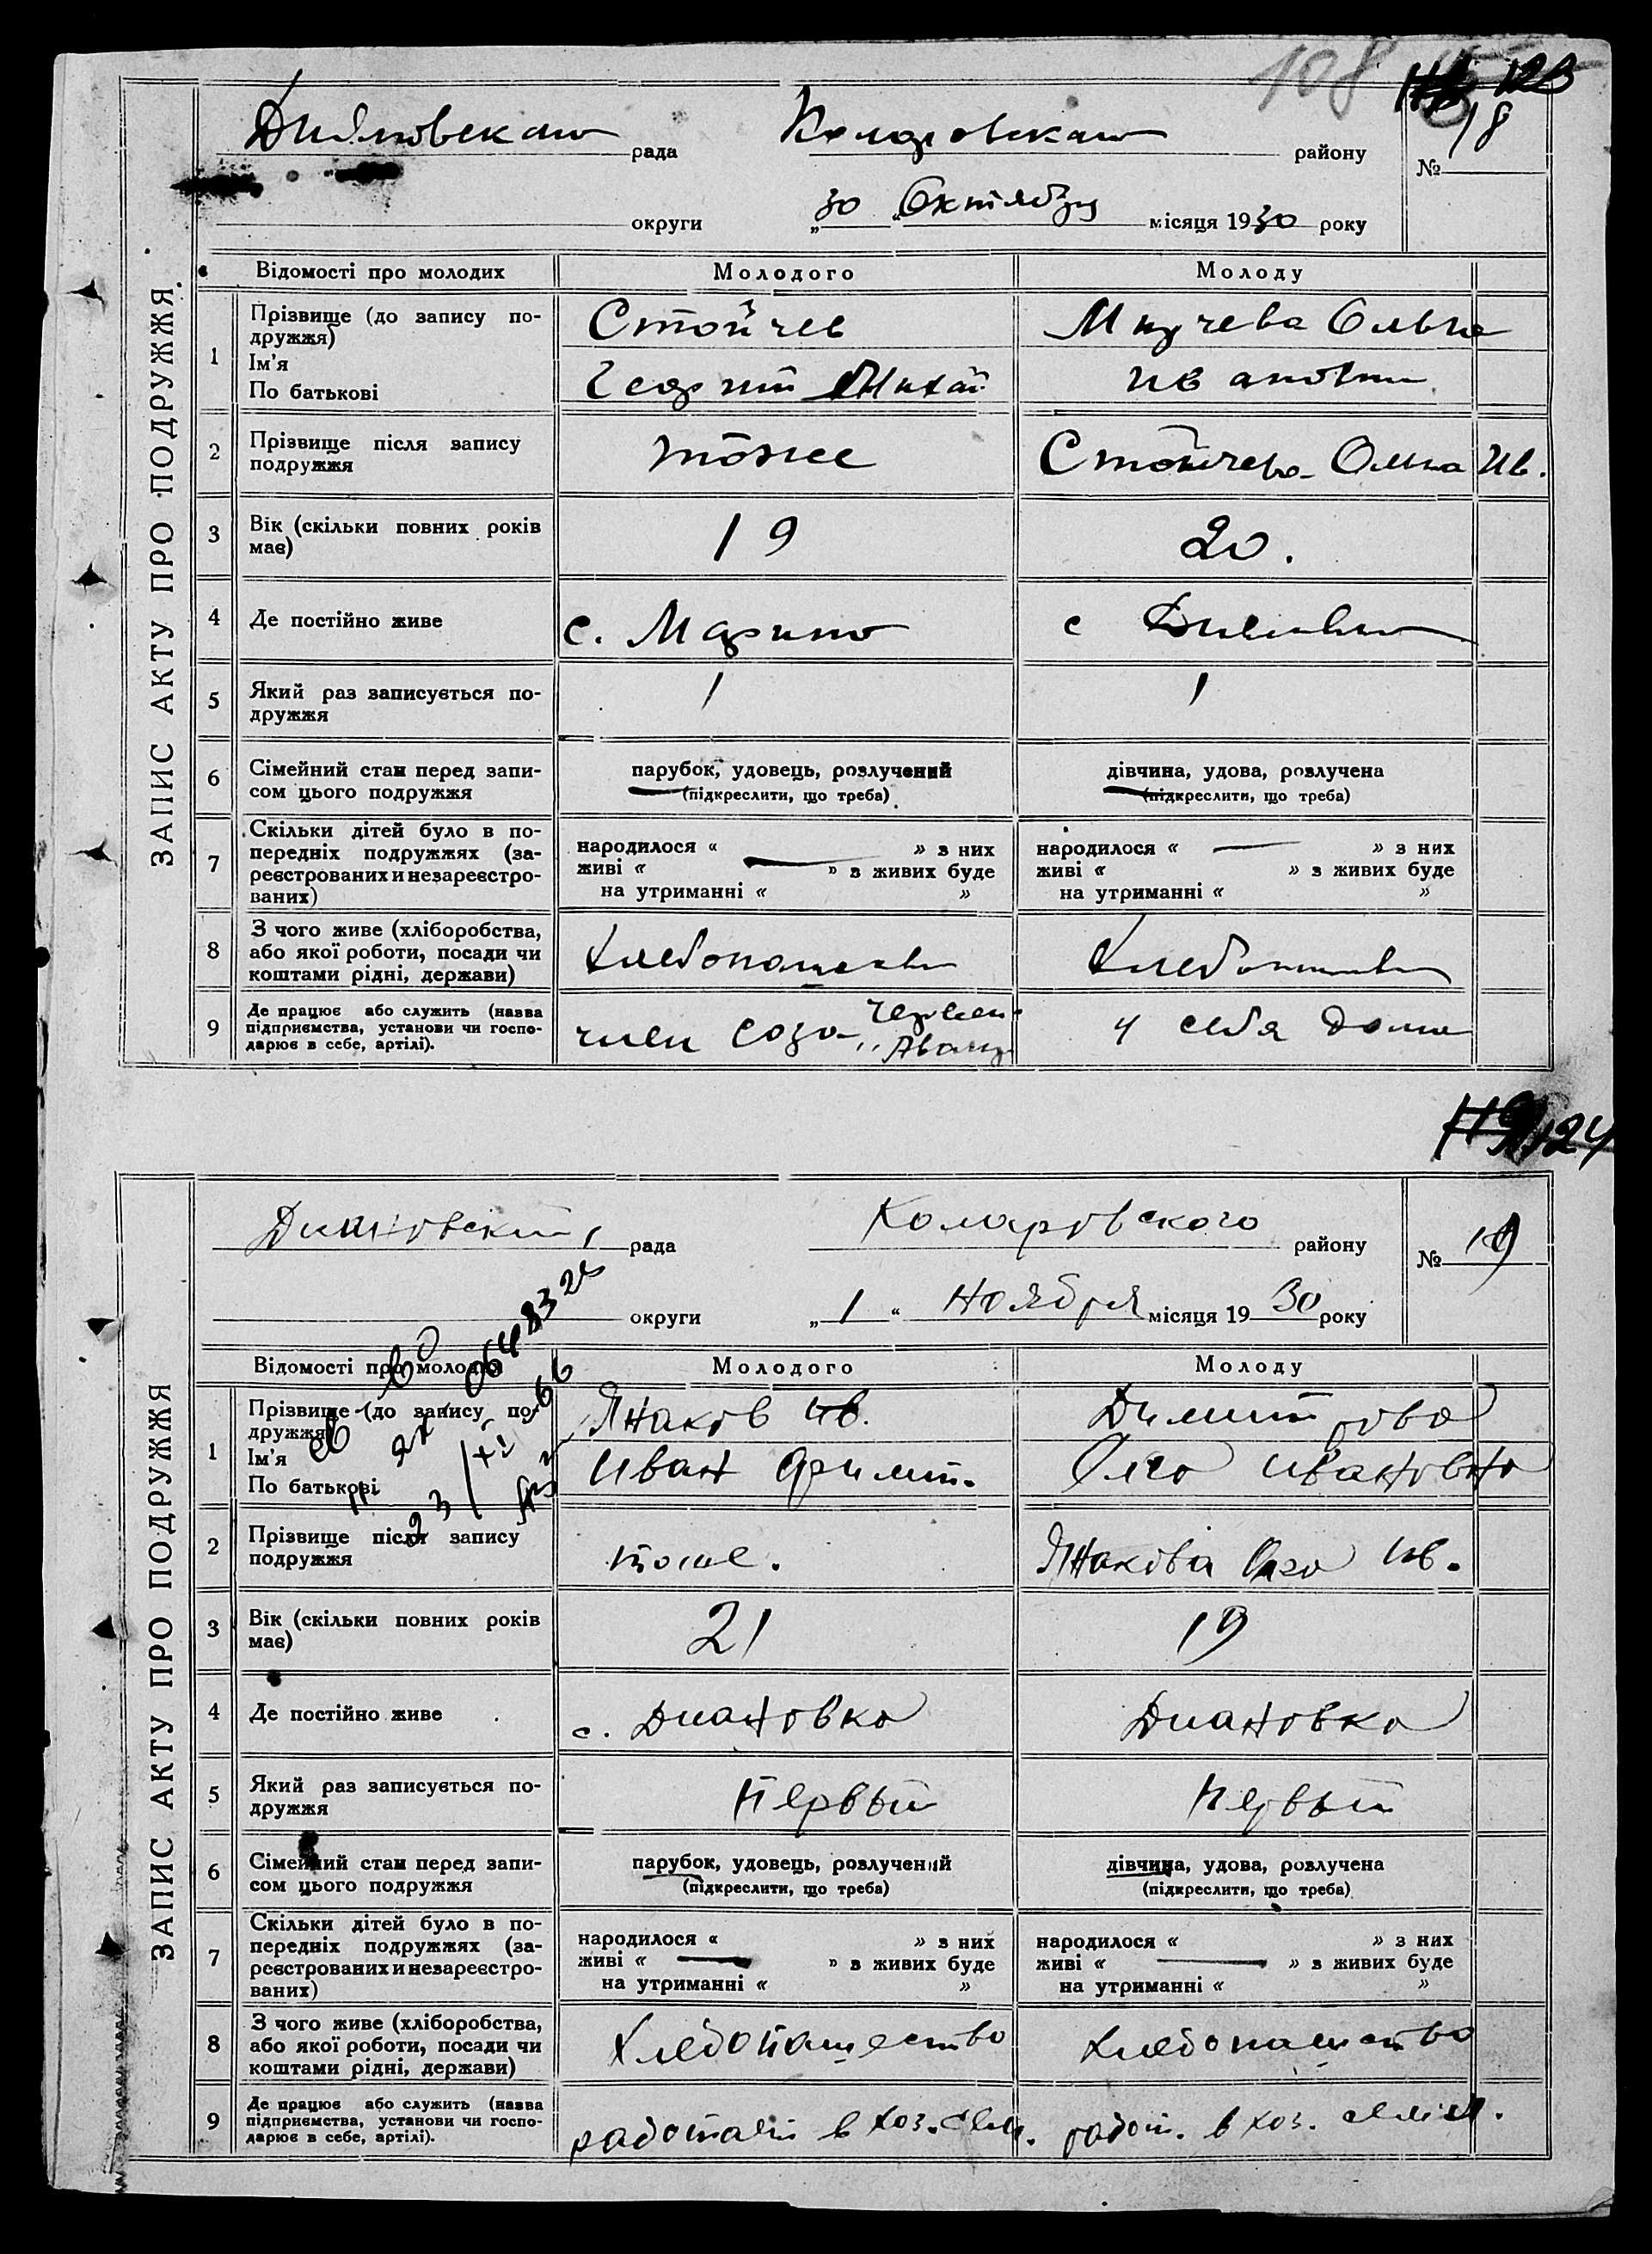 108
123
рада
району
№ 18
округи
„30“ Октября місяця 1930 року
ЗАПИС АКТУ ПРО ПОДРУЖЖЯ
Відомості про молодих
Молодого
Молоду
1
Прізвище (до запису по-
дружжя)
Ім'я
По батькові
Стойчев
Георгий Михай
Ольга
Ивановна
2
Прізвище після запису
подружжя
тоже
Стойчева Ольга Ив.
3
Вік (скільки повних років
має)
19
20.
4
Де постійно живе
с. Марино
с
5
Який раз записується по-
дружжя
1
1
6
Сімейний стан перед запи-
сом цього подружжя
парубок, удовець, розлучений
(підкреслити, що треба)
дівчина, удова, розлучена
(підкреслити, що треба)
7
Скільки дітей було в по-
передніх подружжях (за-
реєстрованих и незареєстро-
ваних)
народилося « — » з них
живі « » з живих буде
на утриманні « »
народилося « — » з них
живі « » з живих буде
на утриманні « »
8
З чого живе (хліборобства,
або якої роботи, посади чи
коштами рідні, держави)
9
Де працює або служить (назва
підприємства, установи чи госпо-
дарює в себе, артілі).
член соза
у себя дома
124
рада
Комаровского району
№ 19
округи
„1“ Ноября місяця 1930 року
ЗАПИС АКТУ ПРО ПОДРУЖЖЯ
Відомості про молодих
Молодого
Молоду
1
Прізвище (до запису по-
дружжя)
Ім'я
По батькові
Янаков Ив.
Иван Димит.
Димитрова
Ивановна
2
Прізвище після запису
подружжя
тоже.
Янакова Ив.
3
Вік (скільки повних років
має)
21
19
4
Де постійно живе
с. Диановка
Диановка
5
Який раз записується по-
дружжя
Первый
Первый
6
Сімейний стан перед запи-
сом цього подружжя
парубок, удовець, розлучений
(підкреслити, що треба)
дівчина, удова, розлучена
(підкреслити, що треба)
7
Скільки дітей було в по-
передніх подружжях (за-
реєстрованих и незареєстро-
ваних)
народилося « » з них
живі « — » з живих буде
на утриманні « »
народилося « » з них
живі « — » з живих буде
на утриманні « »
8
З чого живе (хліборобства,
або якої роботи, посади чи
коштами рідні, держави)
Хлебопашество
Хлебопашество
9
Де працює або служить (назва
підприємства, установи чи госпо-
дарює в себе, артілі).
работает в хоз. сем.
работ. в хоз. семьи.